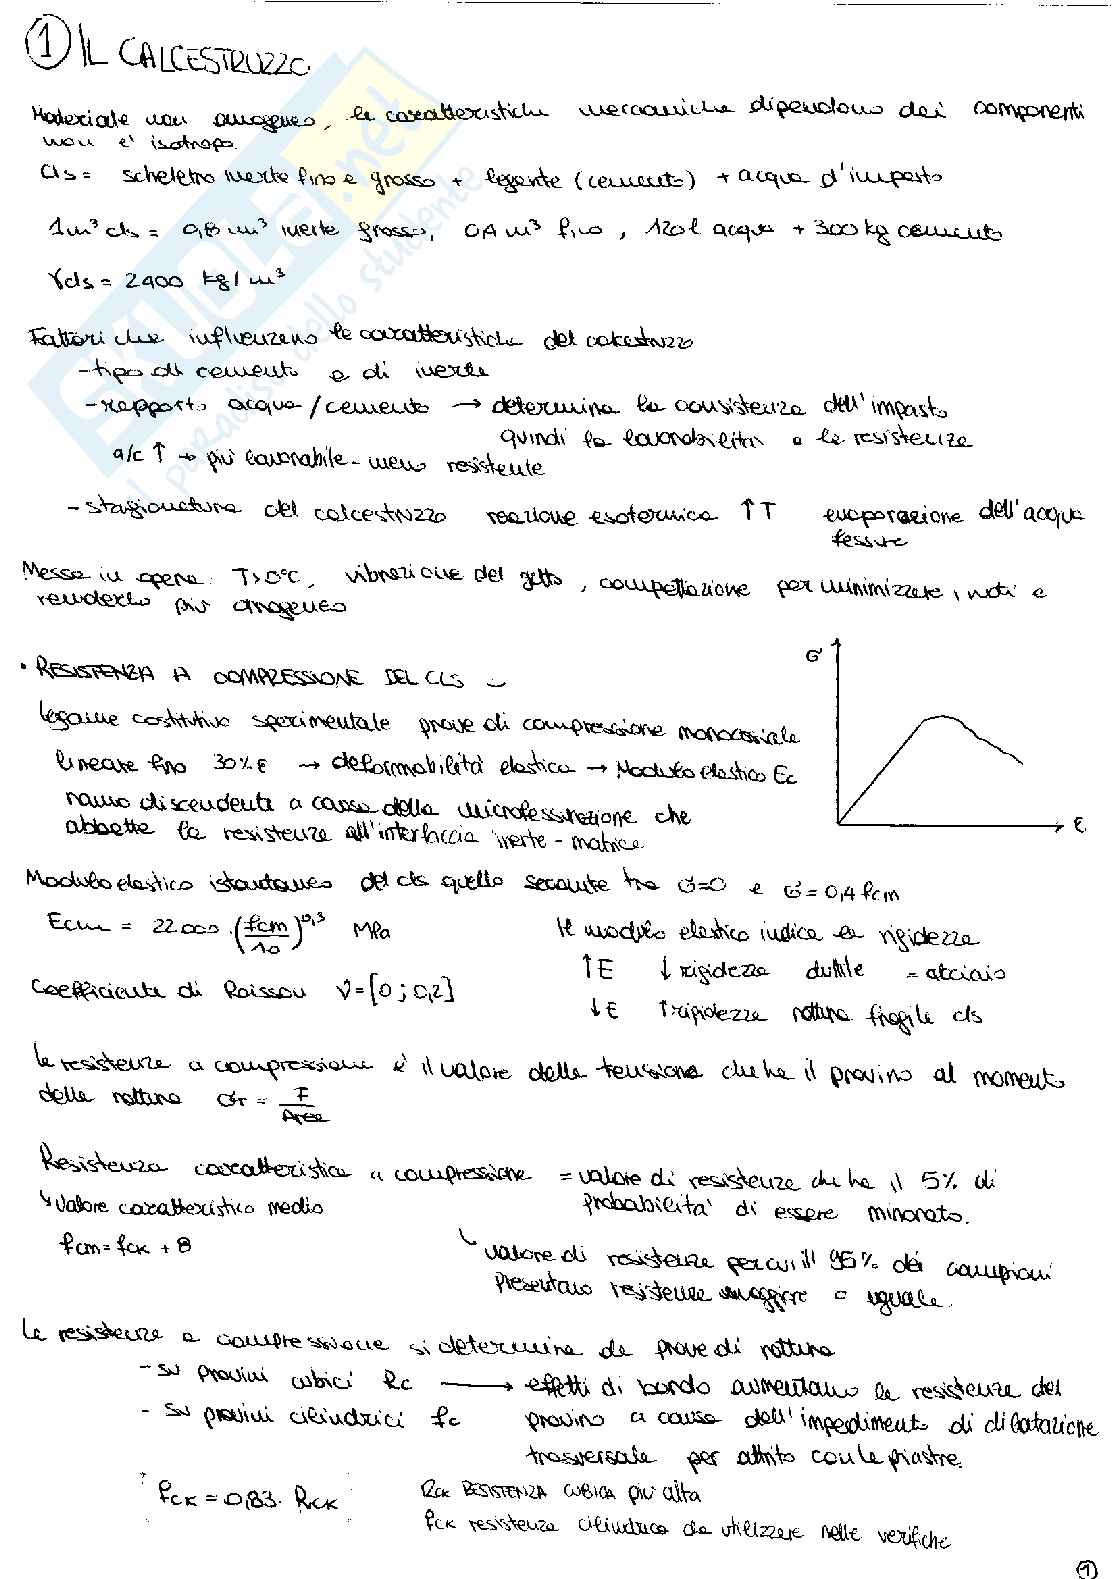 1 IL CALCESTRUZZO
Materiale non omogeneo, le caratteristiche meccaniche dipendono dai componenti
non e' isotropo.
Cls = scheletro inerte fino e grosso + legante (cemento) + acqua d'impasto
1m³ cls = 0,8 m³ inerte grosso, 0,4 m³ fino, 120 l acqua + 300 kg cemento
γcls = 2400 kg/m³
Fattori che influenzano le caratteristiche del calcestruzzo
- tipo di cemento e di inerte
- rapporto acqua/cemento → determina la consistenza dell'impasto
quindi la lavorabilità e la resistenza
a/c ↑ → più lavorabile - meno resistente
- stagionatura del calcestruzzo reazione esotermica ↑T evaporazione dell'acqua
fessure
Messa in opera: T>0°C, vibrazione del getto, compattazione per minimizzare i vuoti e
renderlo più omogeneo
• RESISTENZA A COMPRESSIONE DEL CLS
σ
legame costitutivo sperimentale prove di compressione monoassiale
lineare fino 30% ε → deformabilità elastica → Modulo elastico Ec
ramo discendente a causa della microfessurazione che
abbatte la resistenza all'interfaccia inerte - matrice
ε
Modulo elastico istantaneo del cls quello secante tra σ=0 e σ=0,4 fcm
Ecm = 22.000 · (fcm/10)^0,3 MPa
Il modulo elastico indica la rigidezza
↑E ↓rigidezza duttile = acciaio
Coefficiente di Poisson ν = [0 ; 0,2]
↓E ↑rigidezza rottura fragile cls
La resistenza a compressione è il valore della tensione che ha il provino al momento
della rottura σr = F/Area
Resistenza caratteristica a compressione = valore di resistenza che ha il 5% di
probabilità di essere minorato.
↳ Valore caratteristico medio
fcm = fck + 8
↳ valore di resistenza per cui il 95% dei campioni
presentano resistenza maggiore o uguale.
La resistenza a compressione si determina da prove di rottura
- su provini cubici Rc → effetti di bordo aumentano la resistenza del
- su provini cilindrici fc provino a causa dell'impedimento di dilatazione
trasversale per attrito con le piastre.
fck = 0,83 · Rck
Rck RESISTENZA CUBICA più alta
fck resistenza cilindrica da utilizzare nelle verifiche
1
SKUOLA.net
il paradiso dello studente